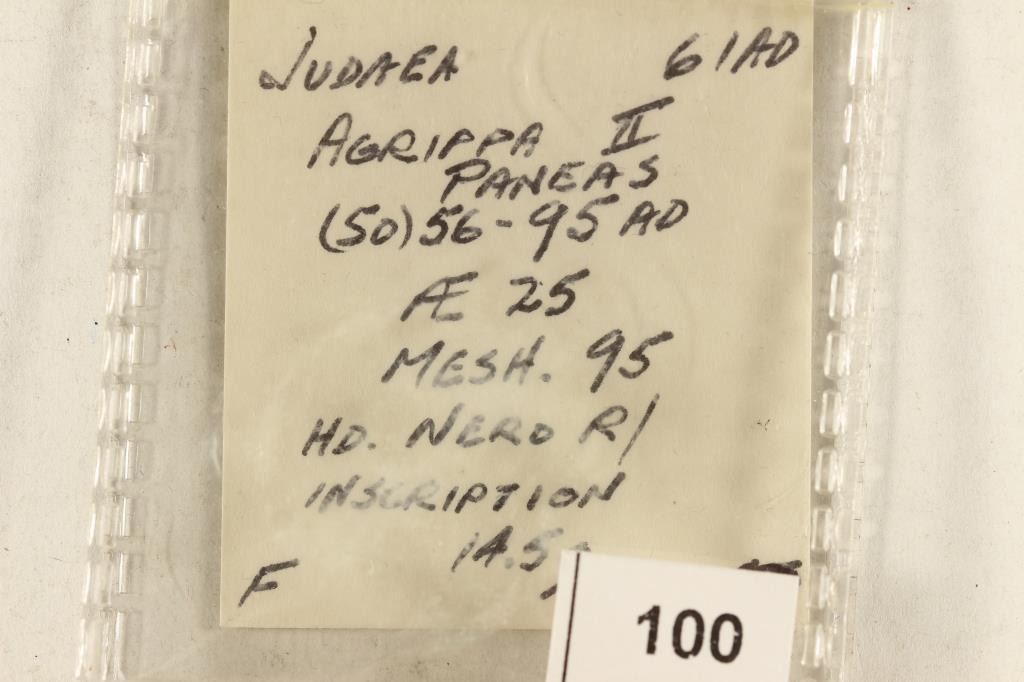 JUDAEA 61AD
AGRIPPA II
PANEAS
(50)56-95 AD
Æ 25
MESH. 95
HD. NERO R/
INSCRIPTION
14.5
F
100